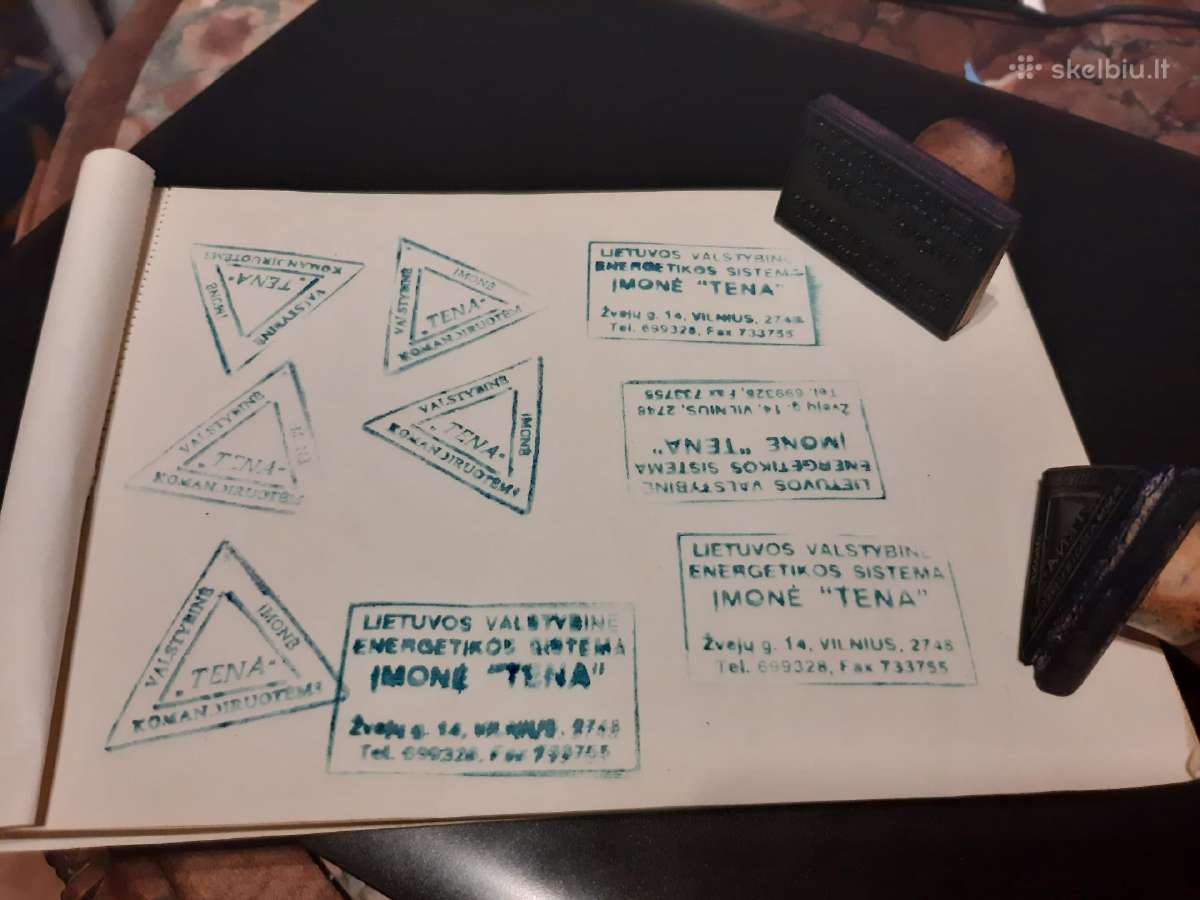 skelbiu.lt
KOMANDIRUOTĖMS
"TENA"
VALSTYBINĖ
ĮMONĖ
VALSTYBINĖ
ĮMONĖ
"TENA"
KOMANDIRUOTĖMS
LIETUVOS VALSTYBINĖ
ENERGETIKOS SISTEMA
ĮMONĖ "TENA"
Žvejų g. 14, VILNIUS, 2748
Tel. 699328, Fax 733755
VALSTYBINĖ
ĮMONĖ
"TENA"
KOMANDIRUOTĖMS
VALSTYBINĖ
ĮMONĖ
"TENA"
KOMANDIRUOTĖMS
LIETUVOS VALSTYBINĖ
ENERGETIKOS SISTEMA
ĮMONĖ "TENA"
Žvejų g. 14, VILNIUS, 2748
Tel. 699328, Fax 733755
VALSTYBINĖ
ĮMONĖ
"TENA"
KOMANDIRUOTĖMS
LIETUVOS VALSTYBINĖ
ENERGETIKOS SISTEMA
ĮMONĖ "TENA"
Žvejų g. 14, VILNIUS, 2748
Tel. 699328, Fax 733755
LIETUVOS VALSTYBINĖ
ENERGETIKOS SISTEMA
ĮMONĖ "TENA"
Žvejų g. 14, VILNIUS, 2748
Tel. 699328, Fax 733755